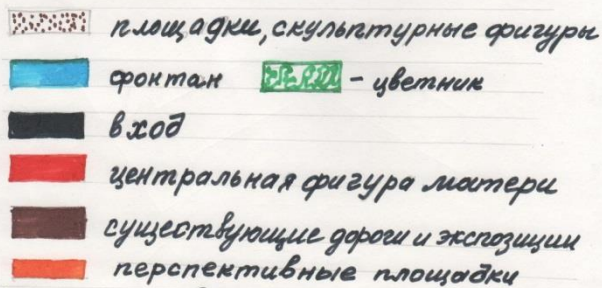 площадки, скульптурные фигуры
фонтан - цветник
вход
центральная фигура матери
существующие дороги и экспозиции
перспективные площадки